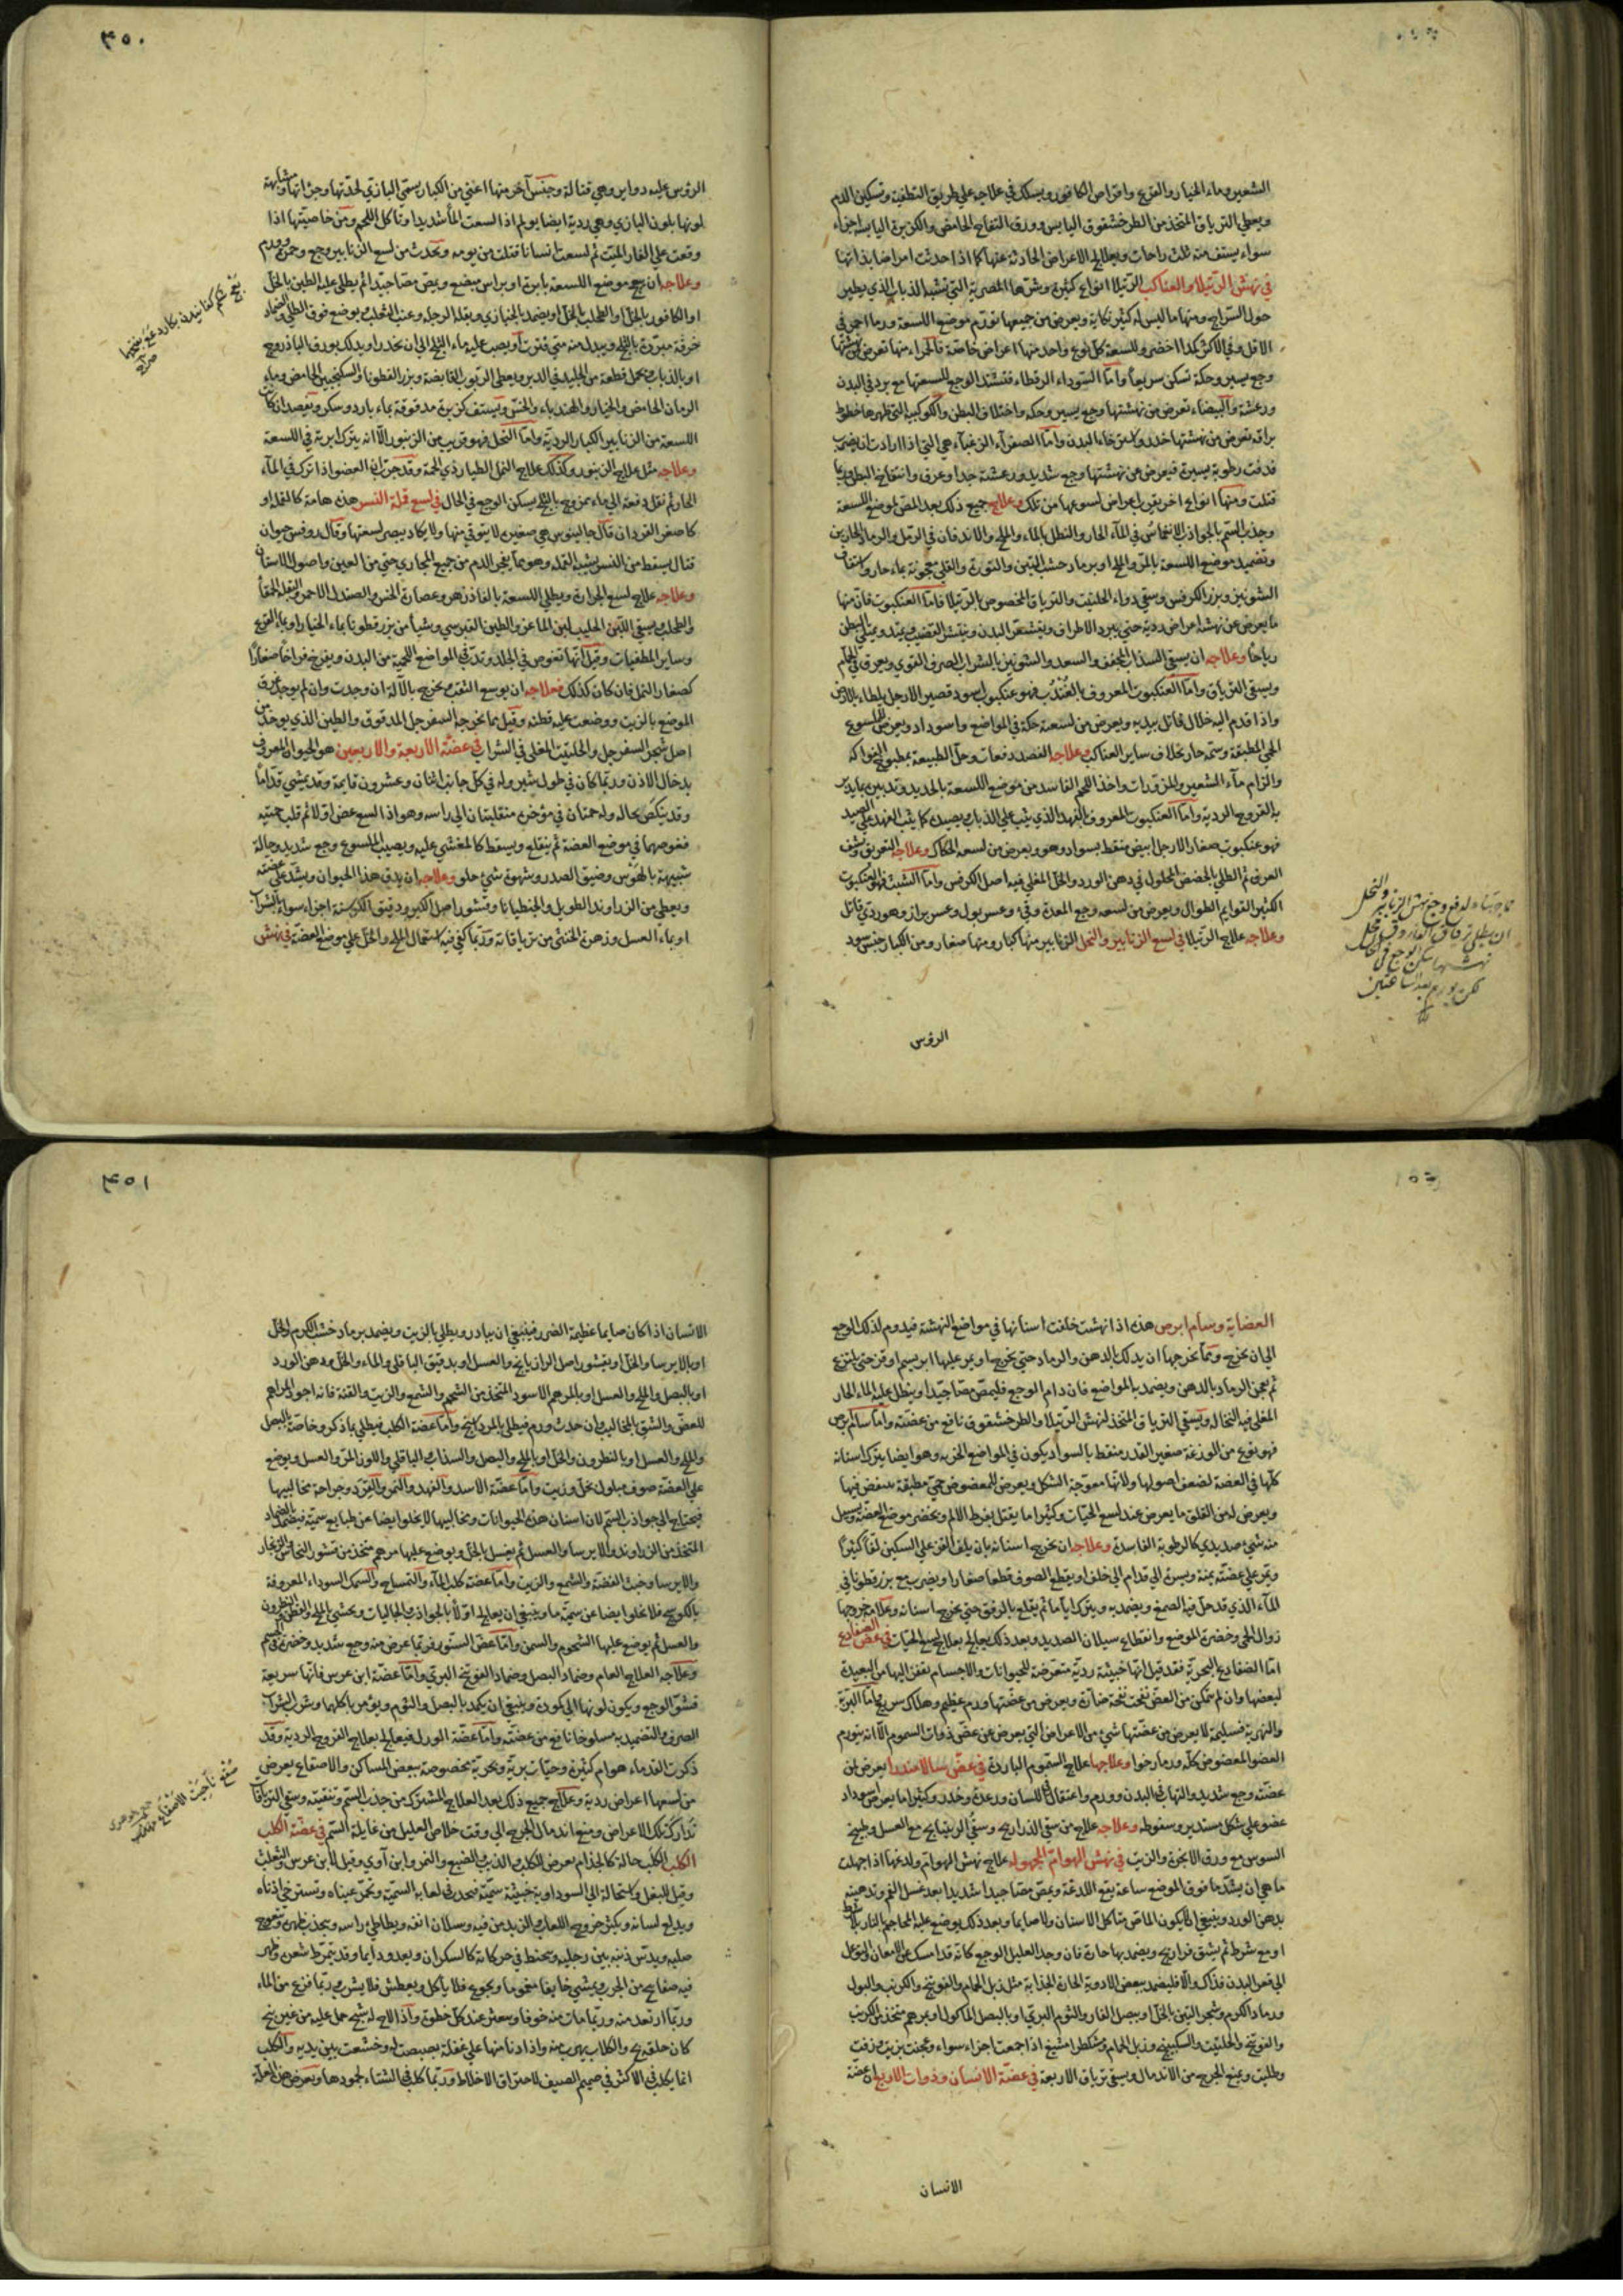 الشعير وماء الخيار والقرع واقراص الكافور ويسلك في علاجه علي طريق التطفية وتسكين الدم
ويعطي الترياق المتخذ من الطرخشقوق اليابس وورق التفاح الحامض والكزبرة اليابسة اجزاء
سواء يستف منه ثلث راحات ويعالج الاعراض الحادثة عنها كما اذا حدثت امراضا بذاتها
في نهش الرتيلا والعناكب الرتيلا انواع كثيرة وشرها المصرية التي تشبه الذباب الذي يطير
حول السراج ومنها ما ليس له كثير نكاية ويعرض من جميعها تورم موضع اللسعة وربما احمر في
الاقل وفي الاكثر كمدا اخضر وللسعة كل نوع واحد منها اعراض خاصة فالحمراء منها تعرض من نهشتها
وجع يسير وحكة تسكن سريعا واما السوداء الرقطاء فتشتد الوجع للسعتها مع برد في البدن
ورعشة والبيضاء تعرض من نهشتها وجع يسير وحكة واختلاف البطن والكوكبية التي ظهرها خطوط
براقة تعرض من نهشتها خدر واسترخاء البدن واما الصفراء الزغباء هي التي اذا ارادت ان يضرب
قذفت رطوبة يسيرة فيعرض عن نهشتها وجع شديد ورعشة جدا وعرق وانتفاخ البطن وربما
قتلت ومنها انواع اخر يقرب اعراض لسوعها من تلك وعلاج جميع ذلك بعد المص لموضع اللسعة
وجذب السم بالجواذب الانغماس في المآء الحار والنطل بالماء والملح والاندفان في الرمل والرماد الحارين
وتضميد موضع اللسعة بالمر والملح او برماد خشب التين والنورة والقلي معجونة بماء حار واستفاف
الشونيز وبزر الكرفس وسقي دواء الحلتيت والترياق المخصوص بالرتيلا فاما العنكبوت فان منها
ما يعرض عن نهشه اعراض ردية حتي يبرد الاطراف ويقشعر البدن وينتشر القضيب ويمتد ويمتلي البطن
رياحا وعلاجه ان يسقي السذاب المجفف والسعد والشونيز بالشراب الصرف القوي ويعرق في الحمام
ويسقي الترياق واما العنكبوت المعروف بالفندب فهو عنكبوت اسود قصير الارجل يلطاء بالارض
واذا قدم اليه خلال قاتل بيديه ويعرض من لسعته حكة في المواضع واسوداد ويعرض للملسوع
الحمي المطبقة وسمه حار بخلاف ساير العناكب وعلاجه الفصد دفعات وحل الطبيعة بمطبوخ الفواكه
والزام مآء الشعير والمزورات واخذ اللحم الفاسد من موضع اللسعة بالحديد وتدبيره بما يدبر
به القروح الردية واما العنكبوت المعروف بالفهد الذي يثب علي الذباب ويصيده كما يثب الفهد علي الصيد
فهو عنكبوت صغار الارجل ابيض منقط بسواد وهو ويعرض من لسعه الحكاك وعلاجه التعريق ونشف
العرق ثم الطلي بالحضض المحلول في دهن الورد والخل المغلي فيه اصل الكرفس واما الشبث فهو العنكبوت
الكثير القوايم الطوال ويعرض من لسعه وجع المعدة وقيء وعسر بول وعسر براز وهو ردي قاتل
وعلاجه علاج الرتيلا في لسع الزنابير والنحل الزنابير منها كبار ومنها صغار ومن الكبار جنس سود
الرؤس
٤٥٠
الرؤس عليه دواير وهي قتالة وجنس آخر منها اعني من الكبار يسمي البازي لحدتها وجرأتها ومشابهة
لونها بلون البازي وهي ردية ايضا يولم اذا لسعت الما شديدا وتأكل اللحم ومن خاصيتها اذا
وقعت علي الفار الميت ثم لسعت انسانا قتلت من يومه ويحدث من لسع الزنابير وجع وحمرة وورم
وعلاجه ان يبرح موضع اللسعة بابرة او براس مبضع ويمص مصا جيدا ثم يطلي عليه الطين بالخل
او الكافور بالخل او الطحلب بالخل او يضمد بالخبازي وبقلة الرجلة وعنب الثعلب ويوضع فوق الطلي والضماد
خرقة مبردة بالثلج ويبدل منه متي فترت او يصب عليه ماء الثلج الي ان يخدر او يدلك بورق الباذروج
او بالذباب ويحمل قطعة من الجليد في الدبر ويعطي الربوب القابضة وبزر القطونا والسكنجبين الحامض وماء
الرمان الحامض والخيار والهندباء والخس ويستف كزبرة مدقوقة بماء بارد وسكر ويفصد ان كان
اللسعة من الزنابير الكبار الردية واما النحل فهو قريب من الزنبور الا انه يترك ابرته في اللسعة
وعلاجه مثل علاج الزنبور وكذلك علاج النمل الطيار ذي الحمة وقد جرب ان العضو اذا ترك في المآء
الحار ثم نقل دفعة الي ماء ممزوج بالثلج يسكن الوجع في الحال في لسع قملة النسر هذه هامة كالقملة او
كاصغر القردان قال جالينوس هي صغيرة لا يتوقي منها ولا يكاد يبصر لسعتها وقال روفس حيوان
قتال يسقط من النسر يشبه القملة وهو مما يفجر الدم من جميع المجاري حتي من العين واصول الاسنان
وعلاجه علاج لسع الجرارة ويطلي اللسعة بالفاذزهر وعصارة الخس والصندل الاحمر والبقلة الحمقا
والطحلب ويسقي اللبن الحليب لبن الماعز والطين القبرسي وشيأ من بزر قطونا بماء الخيار او بماء القرع
وساير المطفيات وقيل انها تغوص في الجلد وتدب في المواضع اللحمية من البدن ويفرخ فراخا صغارا
كصغار النمل فان كان كذلك فعلاجه ان يوسع الثقب ويخرج بالآلة ان وجدت وان لم يوجد غرق
الموضع بالزيت ووضعت عليه قطنة وقيل مما يخرجه السفرجل المدقوق والطين الذي يوخذ من
اصل شجر السفرجل والحلتيت المغلي في الشراب في عضة الاربعة والاربعين هو الحيوان المعروف
بدخال الاذن وربما كان في طول شبر وله في كل جانب اثنان وعشرون قايمة وقد يمشي قداما
وقد ينكص بحاله وله حمتان في مؤخره منقلبتان الي راسه وهو اذا لسع عض اولا ثم قلب حمتيه
فغوصهما في موضع العضة ثم ينقلع ويسقط كالمغشي عليه ويصيب الملسوع وجع شديد وحالة
شبيهة بالهوس وضيق الصدر وشهوة شيء حلو وعلاجه ان يدق هذا الحيوان ويشد علي عضته
ويعطي من الزراوند الطويل والجنطيانا وقشور اصل الكبر ودقيق الكرسنة اجزاء سواء بالشراب
او بماء العسل وزهرة الخنثي من ترياقاته وربما كفي فيه استعمال الملح والخل علي موضع العضة في نهش
العضاية وسام ابرص هذه اذا نهشت خلفت اسنانها في مواضع النهشة فيدوم لذلك الوجع
الي ان يخرج ومما يخرجها ان يدلك بالدهن والرماد حتي يخرج او يمر عليها ابريسم او قز حتي ينتزع
ثم يعجن الرماد بالدهن ويضمد به المواضع فان دام الوجع فليمص مصا جيدا وينطل عليه الماء الحار
المغلي فيه النخالة ويسقي الترياق المتخذ لنهش الرتيلا والطرخشقوق نافع من عضته واما سام ابرص
فهو نوع من الوزغة صغير القدر منقط بالسواد يكون في المواضع الخربه وهو ايضا يترك اسنانه
كلها في العضة لضعف اصولها ولانها معوجة الشكل ويعرض للمعضوض حمي مطبقة
ويعرض له من القلق ما يعرض عند لسع الحيات وكثيرا ما يقتل بفرط الالم ويخضر موضع العضة ويسيل
منه شيء صديدي كالرطوبة الفاسدة وعلاجه ان يخرج اسنانه بان يلف القز علي السكين لفا كثيرا
ويمر علي عضته يمنة ويسرة الي قدام الي خلف او يقطع الصوف قطعا صغارا ويضرب مع بزر قطونا في
المآء الذي قد حل فيه الصمغ ويضمد به ويترك اياما ثم يقلع بالرفق حتي يخرج اسنانه وعلامة خروجها
زوال الحمي وخضرة الموضع وانقطاع سيلان الصديد وبعد ذلك يعالج بعلاج لسع الحيات في عض الضفادع
اما الضفادع البحرية فقد قيل انها خبيثة ردية متعرضة للحيوانات والاجسام تقفز اليها من البعيد
ليعضها وان لم تتمكن من العض نفخت نفخة ضارة ويعرض من عضتها ورم عظيم وهلاك سريع واما البرية
والنهرية فسليمة لا يعرض من عضتها شيء من الاعراض التي يعرض عن عض ذوات السموم الا انه يتورم
العضو المعضوض كله ورما رخوا وعلاجها علاج السموم الباردة في عض سالامندرا يعرض من
عضته وجع شديد والتهاب في البدن وورم واعتقال في اللسان ورعدة وخدر وكثيرا ما يعرض اسوداد
عضو علي شكل مستدير وسقوطه وعلاجه علاج من سقي الذراريح وسقي الريتيانج مع العسل وطبيخ
السوسن مع ورق الانجرة والزيت في نهش الهوام المجهولة علاج نهش الهوام ولدغها اذا جهلت
ما هي ان يشد ما فوق الموضع ساعة يقع اللدغة ويمص مصا جيدا شديدا بعد غسل الفم وتدهينه
بدهن الورد وينبغي ان لا يكون الماص متأكل الاسنان ولا صايما وبعد ذلك يوضع عليه المحاجم بالنار بلا شرط
او مع شرط ثم يشق فراريج ويضمد بها حارة فان وجد العليل الوجع كانه قد امسك عن الامعان والتوغل
الي قعر البدن فذاك والا فليضمد ببعض الادوية الحارة الجذابة مثل ذبل الحمام والفوتنج والكرنب والبول
ورماد الكرم وشجر التين بالخل او بصل الفار والثوم البري او بالبصل الماكول او بمرهم متخذ من الكبريت
والفوتنج والحلتيت والسكبينج وزبل الحمام ومشكطرامشيغ اذا جمعت اجزاء سواء وعجنت بزيت وزفت
وطليت ويمنع الجرح من الاندمال ويسقي ترياق الاربعة في عضة الانسان وذوات الاربع ان عضة
الانسان
٤٥١
الانسان اذا كان صايما عظيمة الضرر فينبغي ان يبادر ويطلي بالزيت ويضمد برماد خشب الكرم والخل
او بالايرسا والخل او بقشور اصل الرازيانج والعسل او بدقيق الباقلي والماء والخل ودهن الورد
او بالبصل والملح والعسل او بالمرهم الاسود المتخذ من الشحم والشمع والزيت والقنة فانه اجود المراهم
للعض والشق بالمخاليب وان حدث ورم فيطلي بالمرداسنج واما عضة الكلب فيطلي بما ذكر وخاصة بالبصل
والملح والعسل او بالنطرون والخل او بالملح والبصل والسذاب والباقلي واللوز المر والعسل ويوضع
علي العضة صوف مبلول بخل وزيت واما عضة الاسد والفهد والنمر والقرد وجراحة مخاليبها
فيحتاج الي جواذب السم لان اسنان هذه الحيوانات ومخاليبها لا يخلو ايضا عن طبايع سمية فيضمد بالضماد
المتخذ من الزراوند والايرسا والعسل ثم يغسل بالخل ويوضع عليها مرهم متخذ من قشور النحاس والزنجار
والايرسا وخبث الفضة والشمع والزيت واما عضة كلب المآء والتمساح والسمك السوداء المعروفة
بالكوسج فلا يخلو ايضا عن سمية ما وينبغي ان يعالج اولا بالجواذب والجاليات ويحشي بالملح والقطن والنطرون
والعسل ثم يوضع عليها الشحوم والسمن واما عض السنور فربما عرض منه وجع شديد وخضرة في الجسم
وعلاجه العلاج العام وضماد البصل وضماد الفوتنج البري واما عضة ابن عرس فانها سريعة
فشو الوجع ويكون لونها الي كمودة وينبغي ان يكمد بالبصل والثوم ويؤمر باكلهما وشرب الشراب
الصرف والتضميد به مسلوخا نافع من عضته واما عضة الورل فيعالج بعلاج القروح الردية وقد
ذكرت القدماء هوام كثيرة وحيات برية وبحرية مخصوصة ببعض المساكن والاصقاع يعرض
من لسعها اعراض ردية وعلاج جميع ذلك بعد العلاج المشترك من جذب السم وتنقيته وسقي الترياقات
تدارك تلك الاعراض ومنع اندمال الجرح الي وقت خلاص العليل من غايلة السم في عضة الكلب
الكلب الكلب حالة كالجذام يعرض للكلب والذيب والضبع والنمر وابن آوي وقيل لابن عرس والثعلب
وقيل للبغل واستحالة الي السوداوية خبيثة سمية فيحدث في لعابه السمية وتحمر عيناه وتسترخي اذناه
ويدلع لسانه ويكثر خروج اللعاب والزبد من فيه وسيلان انفه ويطاطيء راسه ويحدب ظهره ويتعوج
صلبه ويدس ذنبه بين رجليه ويختبط في حركاته كالسكران ويعدو دايما وقد يتمرط شعره وظهر
فيه صفايح من الجرب ويمشي خايفا مغموما ويجوع فلا ياكل ويعطش فلا يشرب وربما فزع من الماء
وربما ارتعد منه وربما مات منه خوفا ويعثر عند كل خطوة واذا لاح له شبح حمل عليه من غير نبح
كان حلقه بح والكلاب يهرب منه واذا دنا منها علي غفلة تبصبصت له وخشعت بين يديه والكلب
انما يكلب في الاكثر في صميم الصيف لاحتراق الاخلاط وربما كلب في الشتاء لجمودها ويعرض من هذه العلة